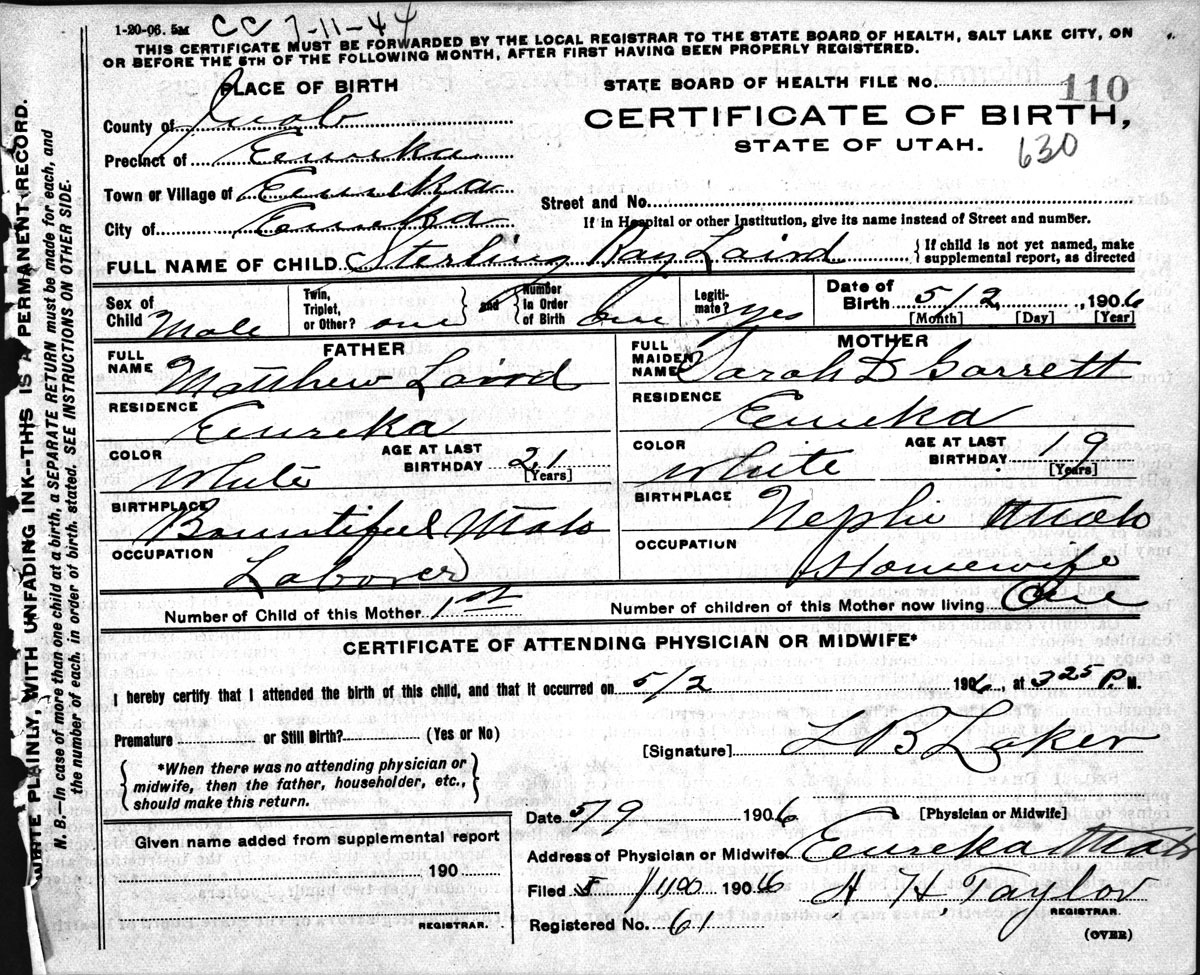 1-20-06. 5M CC 7-11-44
THIS CERTIFICATE MUST BE FORWARDED BY THE LOCAL REGISTRAR TO THE STATE BOARD OF HEALTH, SALT LAKE CITY, ON
OR BEFORE THE 5TH OF THE FOLLOWING MONTH, AFTER FIRST HAVING BEEN PROPERLY REGISTERED.
PLACE OF BIRTH
STATE BOARD OF HEALTH FILE NO. 110
County of Juab
CERTIFICATE OF BIRTH,
STATE OF UTAH. 630
Precinct of Eureka
Town or Village of Eureka
Street and No.
City of Eureka
If in Hospital or other Institution, give its name instead of Street and number.
FULL NAME OF CHILD Sterling Ray Laird
{If child is not yet named, make
supplemental report, as directed
Sex of Child Male
Twin, Triplet, or Other? one } and { Number in Order of Birth One
Legitimate? Yes
Date of Birth 5/2, 1906
[Month] [Day] [Year]
FATHER
FULL NAME Matthew Laird
RESIDENCE Eureka
COLOR White AGE AT LAST BIRTHDAY 21 [Years]
BIRTHPLACE Bountiful Utah
OCCUPATION Laborer
MOTHER
FULL MAIDEN NAME Sarah D Garrett
RESIDENCE Eureka
COLOR White AGE AT LAST BIRTHDAY 19 [Years]
BIRTHPLACE Nephi Utah
OCCUPATION Housewife
Number of Child of this Mother 1st Number of children of this Mother now living One
CERTIFICATE OF ATTENDING PHYSICIAN OR MIDWIFE*
I hereby certify that I attended the birth of this child, and that it occurred on 5/2 1906, at 3 25 P. M.
Premature or Still Birth? (Yes or No)
[Signature] L B Laker
{*When there was no attending physician or
midwife, then the father, householder, etc.,
should make this return.}
Date 5/9 1906 [Physician or Midwife]
Given name added from supplemental report
190
REGISTRAR.
Address of Physician or Midwife Eureka Utah
Filed 1906 H H Taylor
REGISTRAR.
Registered No. 61
(OVER)
WRITE PLAINLY, WITH UNFADING INK--THIS IS A PERMANENT RECORD.
N. B.—In case of more than one child at a birth, a SEPARATE RETURN must be made for each, and
the number of each, in order of birth, stated. SEE INSTRUCTIONS ON OTHER SIDE.